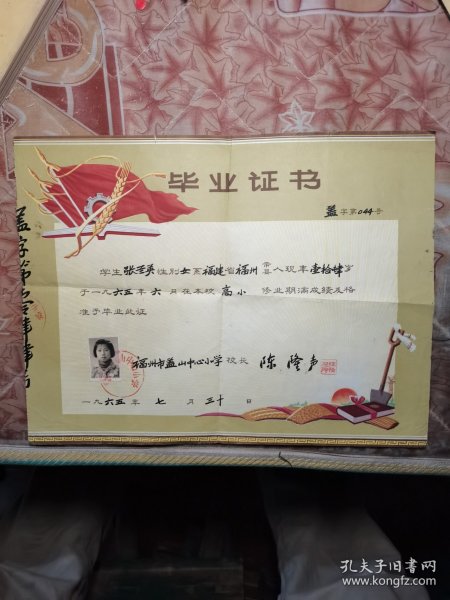 毕业证书
盖字第044号
学生张荃英性别女系福建省福州市县人现年壹拾肆岁
于一九六五年六月在本校高小修业期满成绩及格
准予毕业此证
福州市盖山中心小学校长 陈隆声
一九六五年七月三十日
盖字第
孔夫子旧书网
www.kongfz.com